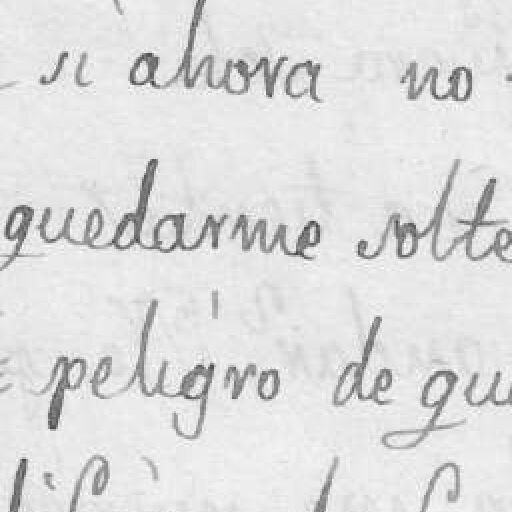 si ahora no
quedarme solte
peligro de que